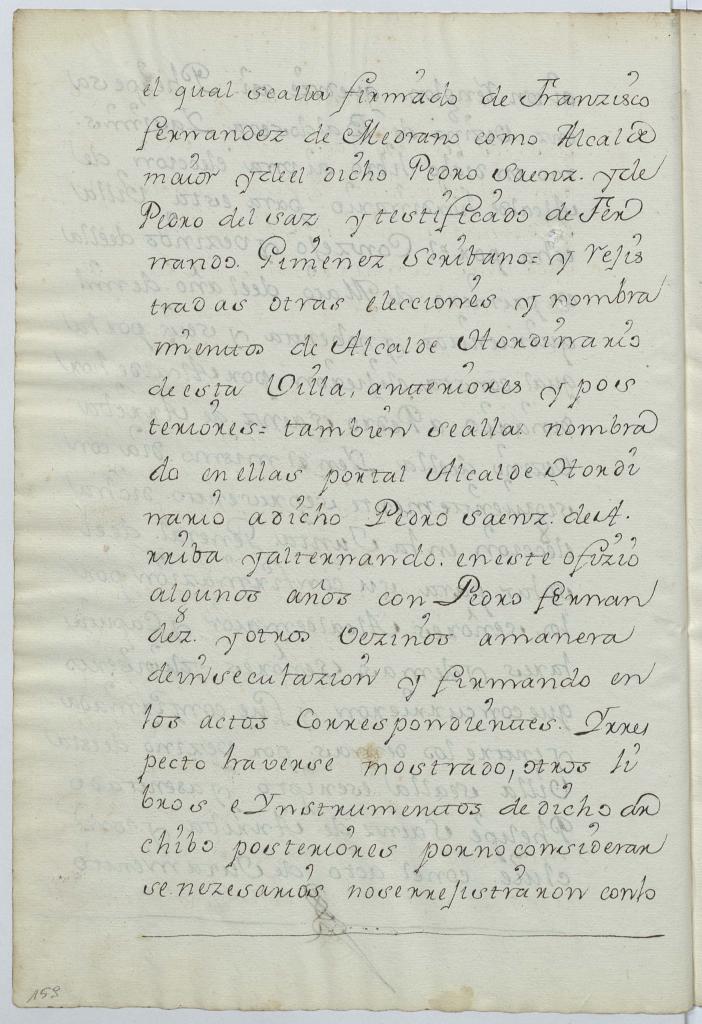 el qual seallá firmado de Franzisco
fernandez de Medrano como Alcalde
maior ydeel dicho Pedro Saenz. yde
Pedro del saz y testificado de Fer
nando. Gimenez Scribano= y rejis
tradas otras elecciones y nombra
mientos de Alcalde Hordinario
de esta Villa, anteriores y pos
teriores= tambien sealla. nombra
do en ellas portal Alcalde Hordi
nario adicho Pedro Saenz. de A.
rriba yalternando. eneste ofizio
algunos años con Pedro fernan
dez. yotros vezinos amanera
deinseculazion y firmando en
los actos Correspondientes. Yrres
pecto haverse mostrado, otros li
bros e Ynstrumentos de dicho ar
chibo posteriores porno considerar
se.nezesarios noserrejistraron conlo
159